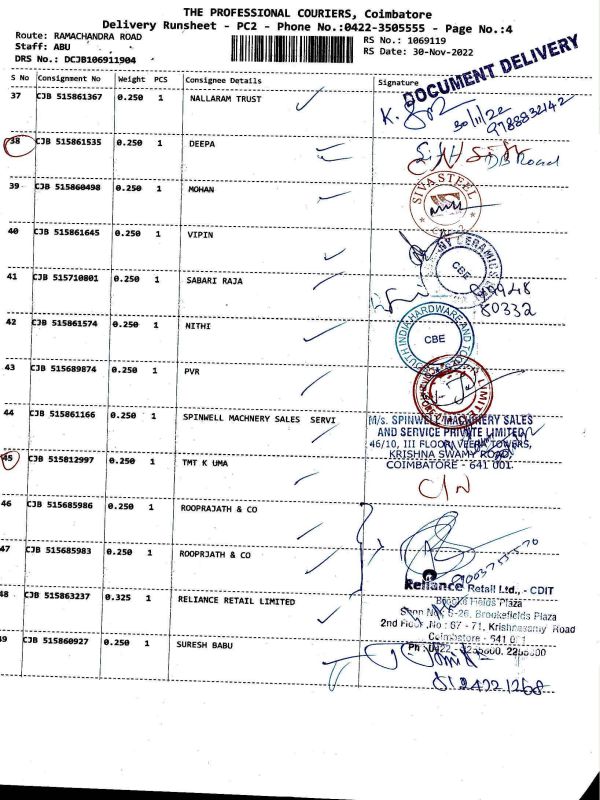 THE PROFESSIONAL COURIERS, Coimbatore
Delivery Runsheet - PC2 - Phone No.:0422-3505555 - Page No.:4
Route: RAMACHANDRA ROAD
RS No.: 1069119
Staff: ABU
RS Date: 30-Nov-2022
DRS No.: DCJB106911904
DOCUMENT DELIVERY
S No Consignment No Weight PCS Consignee Details Signature
37 CJB 515861367 0.250 1 NALLARAM TRUST
30/11/22
9788832142
38 CJB 515861535 0.250 1 DEEPA
DB Road
39 CJB 515860498 0.250 1 MOHAN
SIVA STEEL
40 CJB 515861645 0.250 1 VIPIN
CERAMICS
CBE
41 CJB 515710801 0.250 1 SABARI RAJA
80332
42 CJB 515861574 0.250 1 NITHI
SOUTH INDIA HARDWARE AND
CBE
43 CJB 515689874 0.250 1 PVR
LIMITED
44 CJB 515861166 0.250 1 SPINWELL MACHNERY SALES SERVI
M/s. SPINWELL MACHINERY SALES
AND SERVICE PRIVATE LIMITED
46/10, III FLOOR, VEERA TOWERS,
KRISHNA SWAMY ROAD,
COIMBATORE - 641 001.
45 CJB 515812997 0.250 1 TMT K UMA
C/N
46 CJB 515685986 0.250 1 ROOPRAJATH & CO
47 CJB 515685983 0.250 1 ROOPRJATH & CO
Reliance Retail Ltd., - CDIT
48 CJB 515863237 0.325 1 RELIANCE RETAIL LIMITED
Brooke Fields Plaza
Shop No. S-26, Brookefields Plaza
2nd Floor, No : 67 - 71, Krishnasamy Road
Coimbatore - 641 001
49 CJB 515860927 0.250 1 SURESH BABU